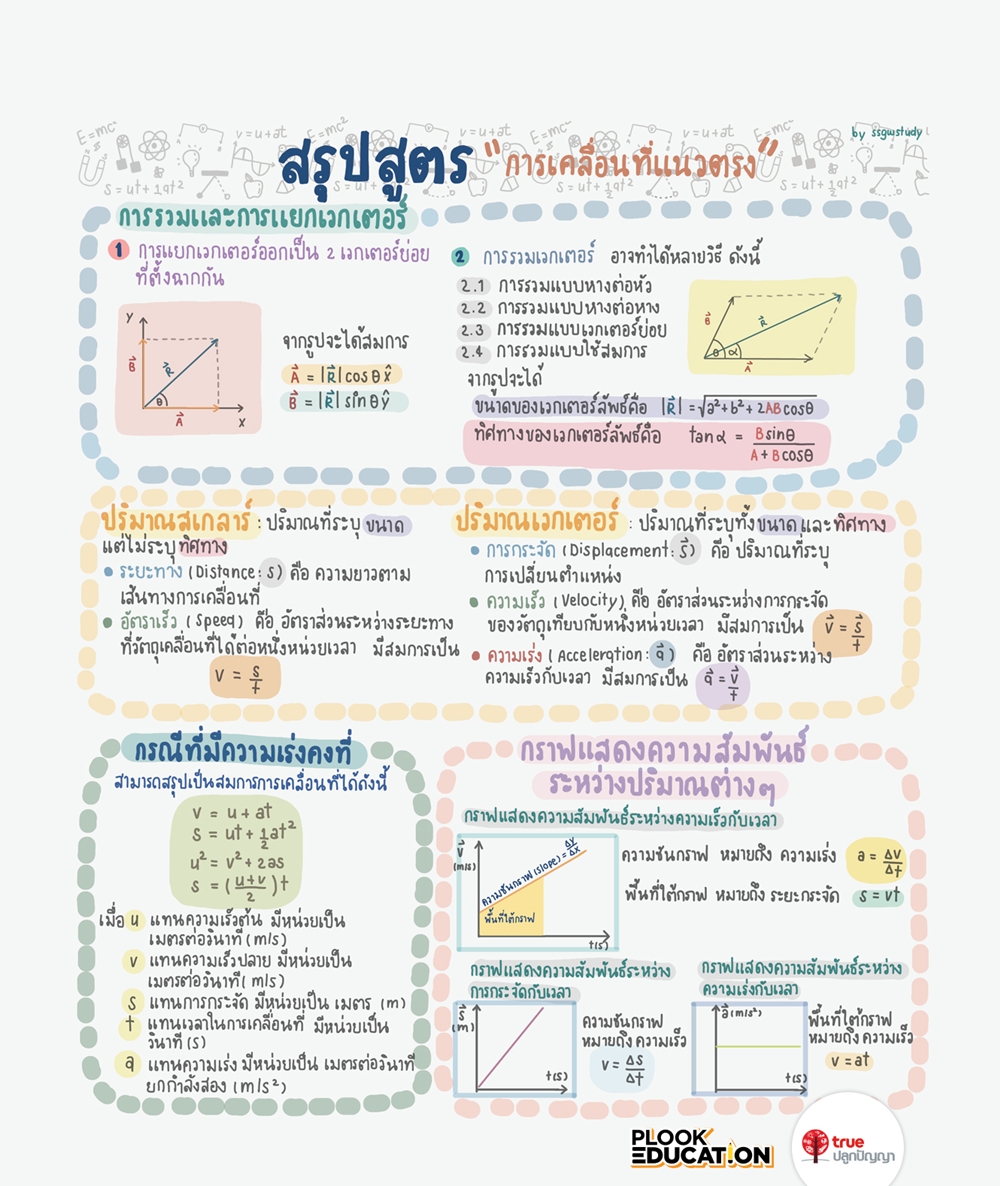 E=mc² v=u+at E=mc² v=u+at E=mc² v=u+at E=mc²
by ssgwstudy
สรุปสูตร "การเคลื่อนที่แนวตรง"
s=ut+½at² s=ut+½at² s=ut+½at²
การรวมและการแยกเวกเตอร์
1 การแยกเวกเตอร์ออกเป็น 2 เวกเตอร์ย่อย
ที่ตั้งฉากกัน
Y
B⃗
R⃗
θ
A⃗
X
จากรูปจะได้สมการ
A⃗ = |R⃗| cosθx̂
B⃗ = |R⃗| sinθŷ
2 การรวมเวกเตอร์ อาจทำได้หลายวิธี ดังนี้
2.1 การรวมแบบหางต่อหัว
2.2 การรวมแบบหางต่อหาง
2.3 การรวมแบบเวกเตอร์ย่อย
2.4 การรวมแบบใช้สมการ
B⃗
R⃗
θ α
A⃗
จากรูปจะได้
ขนาดของเวกเตอร์ลัพธ์คือ |R⃗| = √a²+b²+2ABcosθ
ทิศทางของเวกเตอร์ลัพธ์คือ tanα = Bsinθ / A+Bcosθ
ปริมาณสเกลาร์ : ปริมาณที่ระบุขนาด
แต่ไม่ระบุทิศทาง
• ระยะทาง (Distance: s) คือ ความยาวตาม
เส้นทางการเคลื่อนที่
• อัตราเร็ว (Speed) คือ อัตราส่วนระหว่างระยะทาง
ที่วัตถุเคลื่อนที่ได้ต่อหนึ่งหน่วยเวลา มีสมการเป็น
v = s/t
ปริมาณเวกเตอร์ : ปริมาณที่ระบุทั้งขนาดและทิศทาง
• การกระจัด (Displacement: s⃗) คือ ปริมาณที่ระบุ
การเปลี่ยนตำแหน่ง
• ความเร็ว (Velocity) คือ อัตราส่วนระหว่างการกระจัด
ของวัตถุเทียบกับหนึ่งหน่วยเวลา มีสมการเป็น v⃗ = s⃗/t
• ความเร่ง (Acceleration: a⃗) คือ อัตราส่วนระหว่าง
ความเร็วกับเวลา มีสมการเป็น a⃗ = v⃗/t
กรณีที่มีความเร่งคงที่
สามารถสรุปเป็นสมการการเคลื่อนที่ได้ดังนี้
v = u+at
s = ut+½at²
u² = v²+2as
s = (u+v/2)t
เมื่อ u แทนความเร็วต้น มีหน่วยเป็น
เมตรต่อวินาที (m/s)
v แทนความเร็วปลาย มีหน่วยเป็น
เมตรต่อวินาที (m/s)
s แทนการกระจัด มีหน่วยเป็น เมตร (m)
t แทนเวลาในการเคลื่อนที่ มีหน่วยเป็น
วินาที (s)
a แทนความเร่ง มีหน่วยเป็น เมตรต่อวินาที
ยกกำลังสอง (m/s²)
กราฟแสดงความสัมพันธ์
ระหว่างปริมาณต่างๆ
กราฟแสดงความสัมพันธ์ระหว่างความเร็วกับเวลา
v⃗
(m/s)
ความชันกราฟ (slope) = Δv/Δx
พื้นที่ใต้กราฟ
t(s)
ความชันกราฟ หมายถึง ความเร่ง a = Δv/Δt
พื้นที่ใต้กราฟ หมายถึง ระยะกระจัด s = vt
กราฟแสดงความสัมพันธ์ระหว่าง
การกระจัดกับเวลา
s⃗
(m)
t(s)
ความชันกราฟ
หมายถึง ความเร็ว
v = Δs/Δt
กราฟแสดงความสัมพันธ์ระหว่าง
ความเร่งกับเวลา
a⃗(m/s²)
t(s)
พื้นที่ใต้กราฟ
หมายถึง ความเร็ว
v = at
PLOOK
EDUCATION
true
ปลูกปัญญา